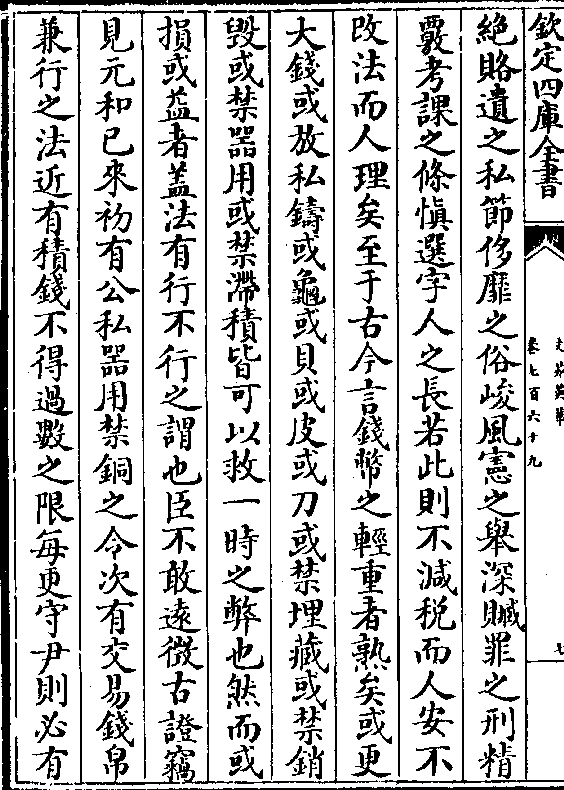 欽定四庫全書
卷七百六十九
七
絶賂遺之私節侈靡之俗峻風憲之舉深贓罪之刑精
覈考課之條慎選字人之長若此則不減税而人安不
改法而人理矣至于古今言錢幣之輕重者熟矣或更
大錢或放私鑄或龜或貝或皮或刀或禁埋藏或禁銷
毁或禁器用或禁滯積皆可以救一時之弊也然而或
損或益者葢法有行不行之謂也臣不敢逺徴古證竊
見元和已來初有公私器用禁銅之令次有交易錢帛
兼行之法近有積錢不得過數之限每更守尹則必有